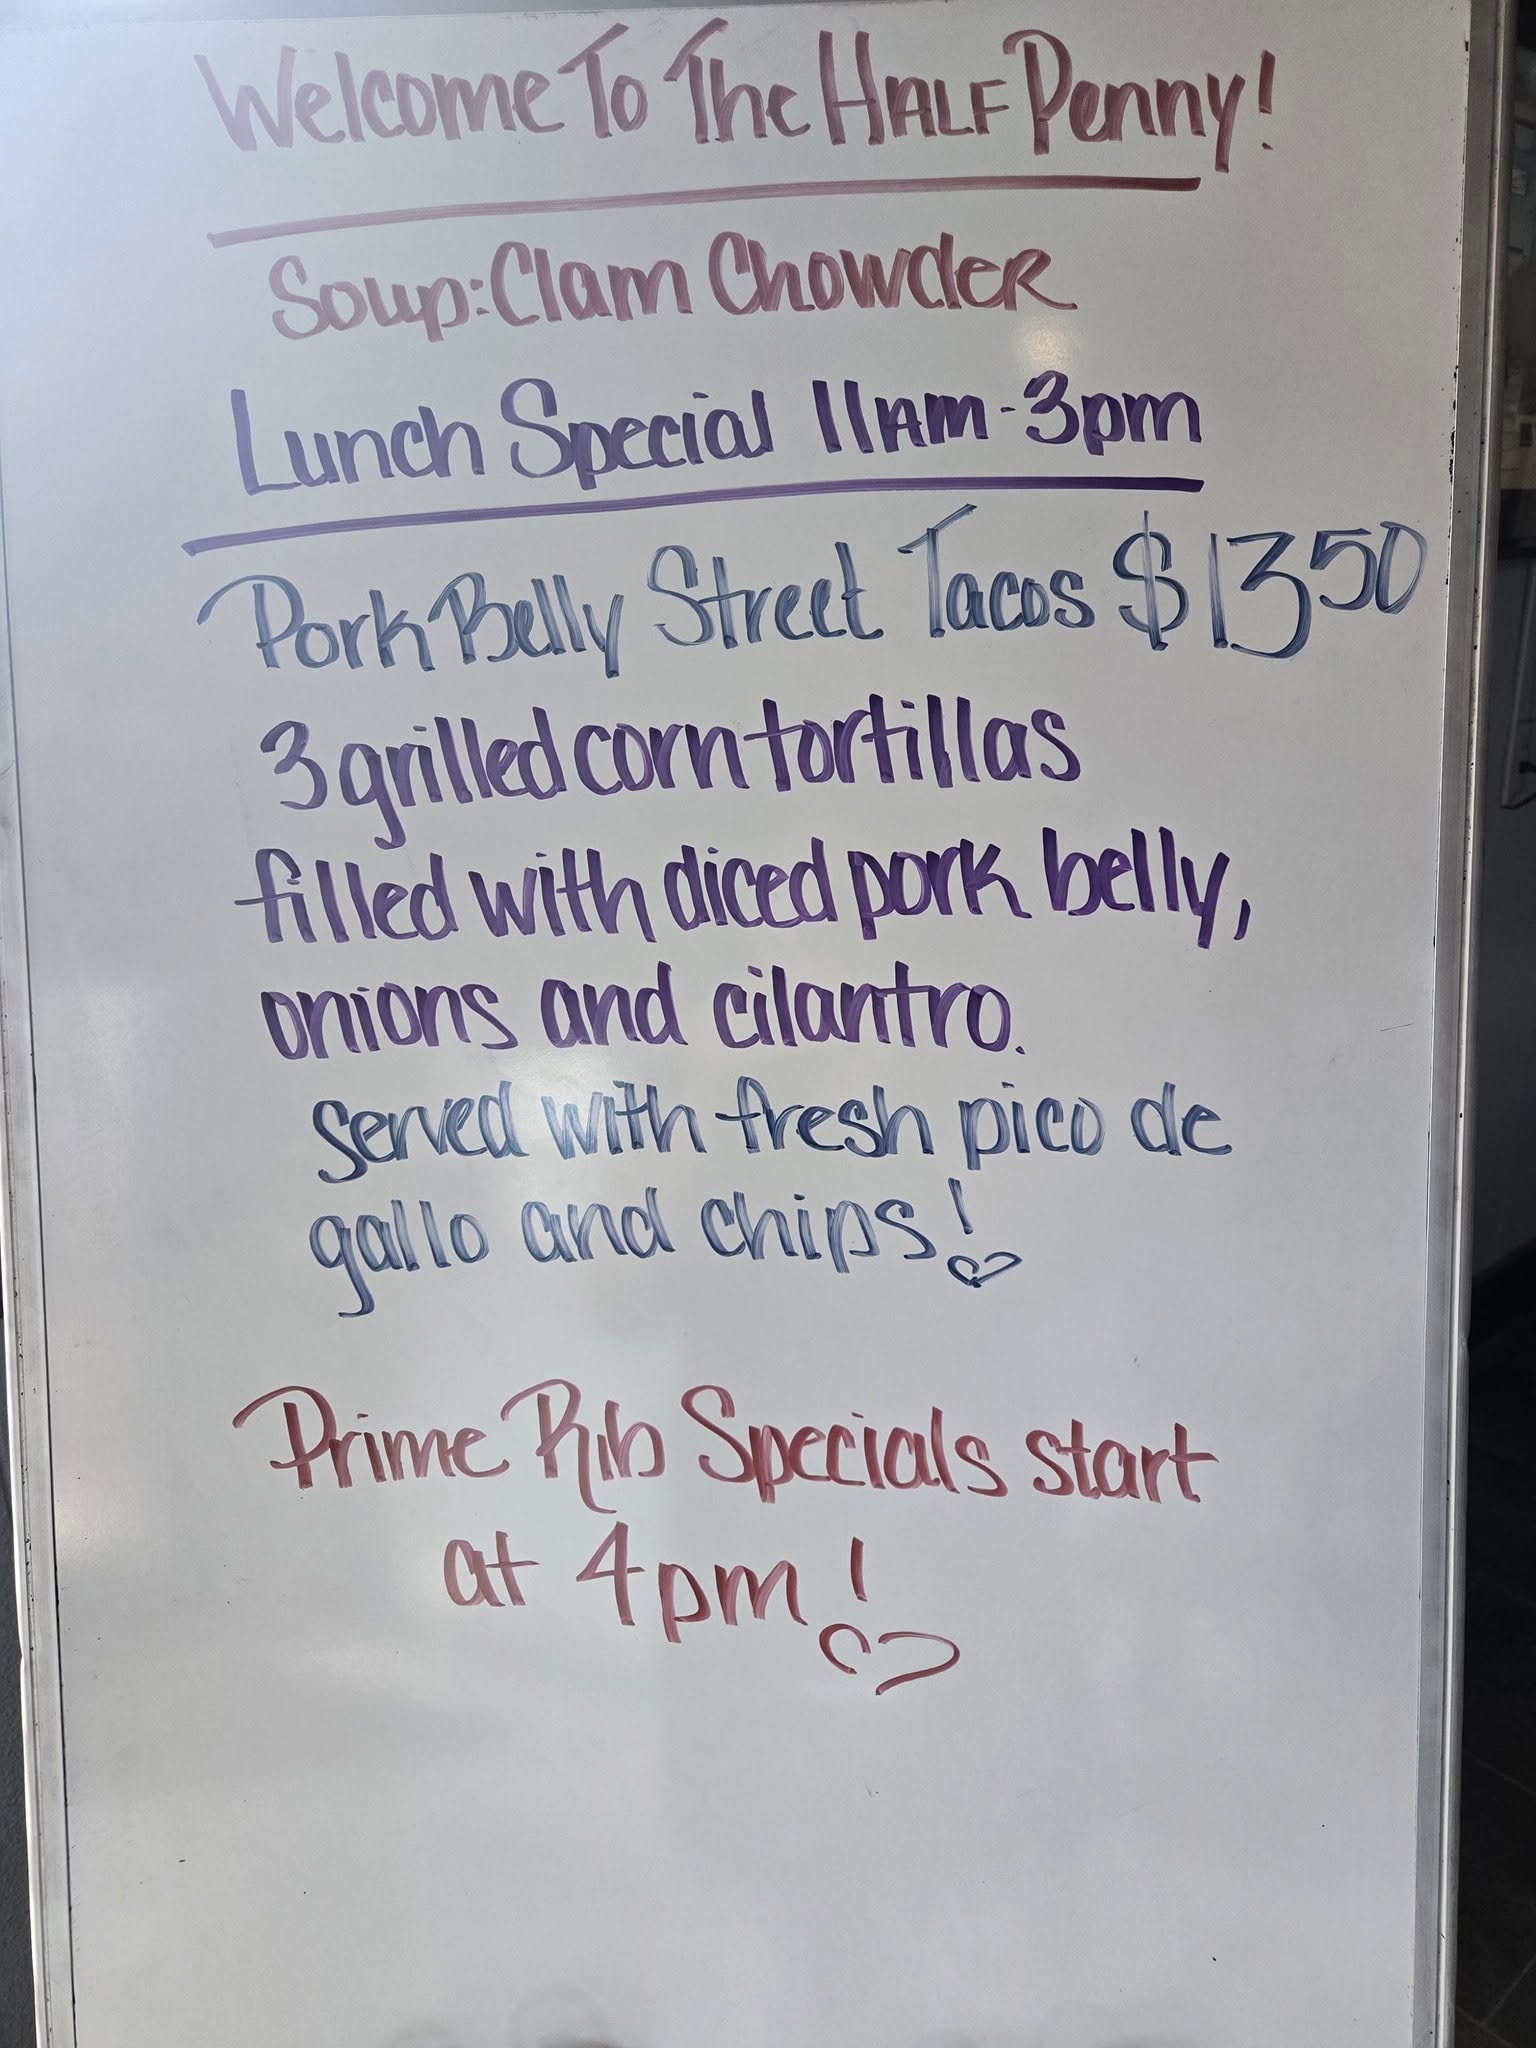 Welcome To The HALF Penny!
Soup: Clam Chowder
Lunch Special 11AM-3pm
Pork Belly Street Tacos $13.50
3 grilled corn tortillas
filled with diced pork belly,
onions and cilantro.
served with fresh pico de
gallo and chips!
Prime Rib Specials start
at 4pm!